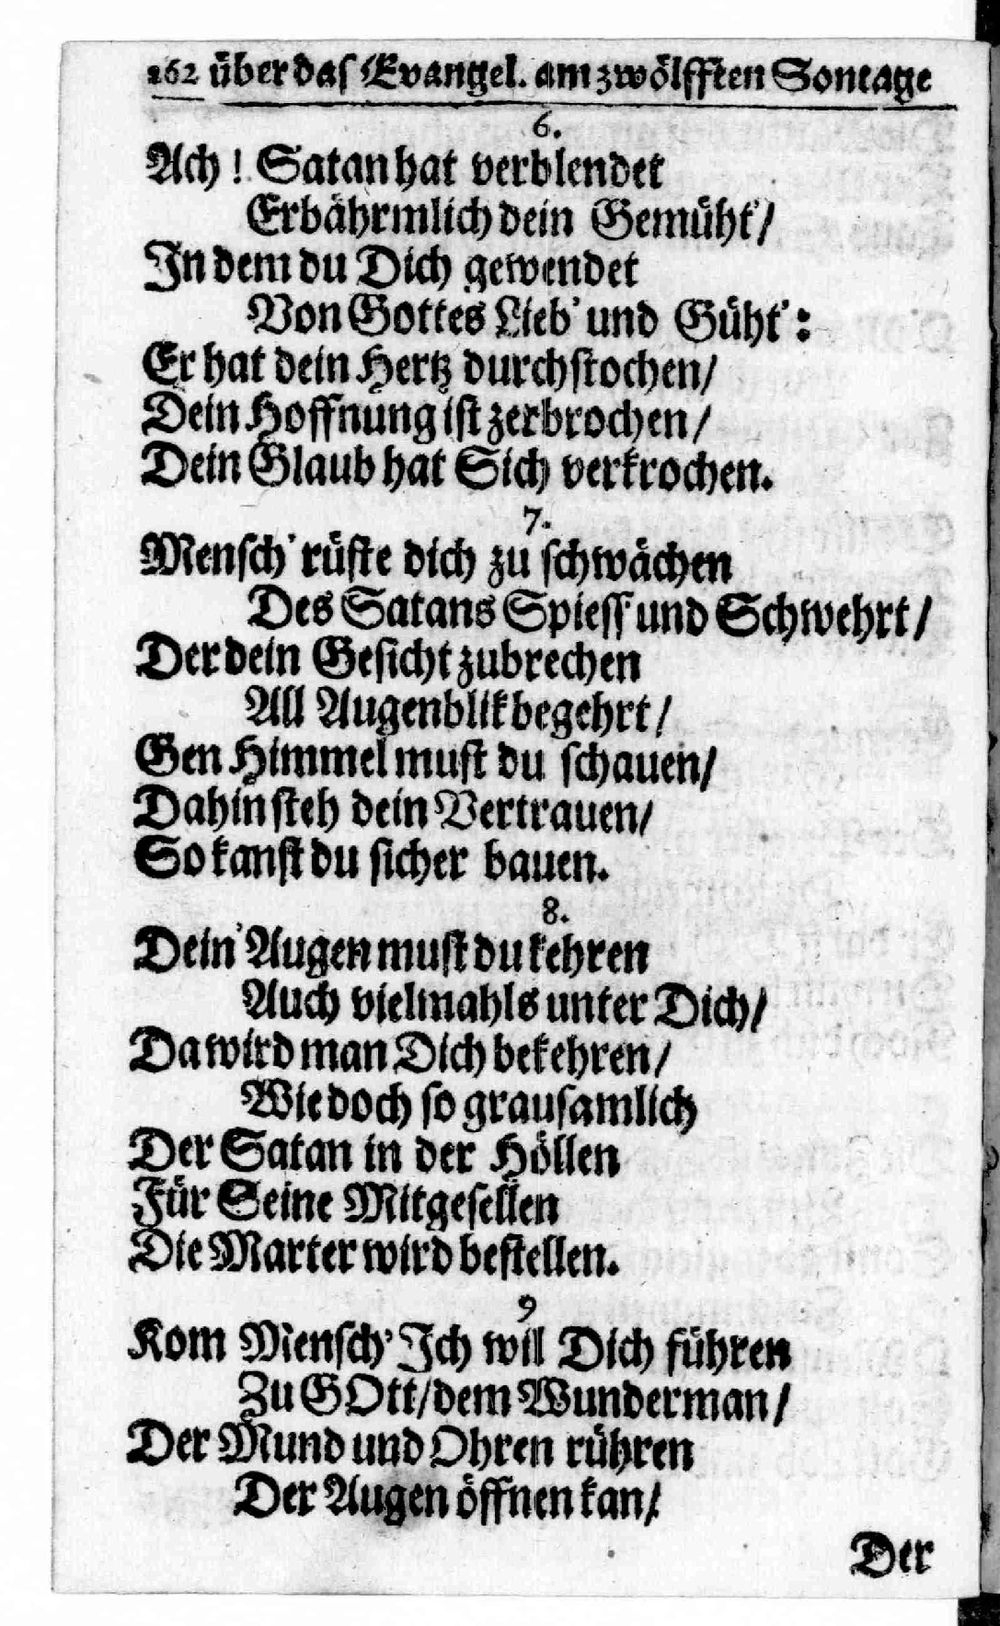 262 über das Evangel. am zwölfften Sontage
6.
Ach! Satan hat verblendet
Erbährmlich dein Gemüht'/
In dem du Dich gewendet
Von Gottes Lieb' und Güht':
Er hat dein Hertz durchstochen/
Dein Hoffnung ist zerbrochen/
Dein Glaub hat Sich verkrochen.
7.
Mensch' rüste dich zu schwächen
Des Satans Spiess' und Schwehrt/
Der dein Gesicht zubrechen
All Augenblik begehrt/
Gen Himmel must du schauen/
Dahin steh dein Vertrauen/
So kanst du sicher bauen.
8.
Dein' Augen must du kehren
Auch vielmahls unter Dich/
Da wird man Dich bekehren/
Wie doch so grausamlich
Der Satan in der Höllen
Für Seine Mitgesellen
Die Marter wird bestellen.
9
Kom Mensch' Ich will Dich führen
Zu GOtt/dem Wunderman/
Der Mund und Ohren rühren
Der Augen öffnen kan/
Der